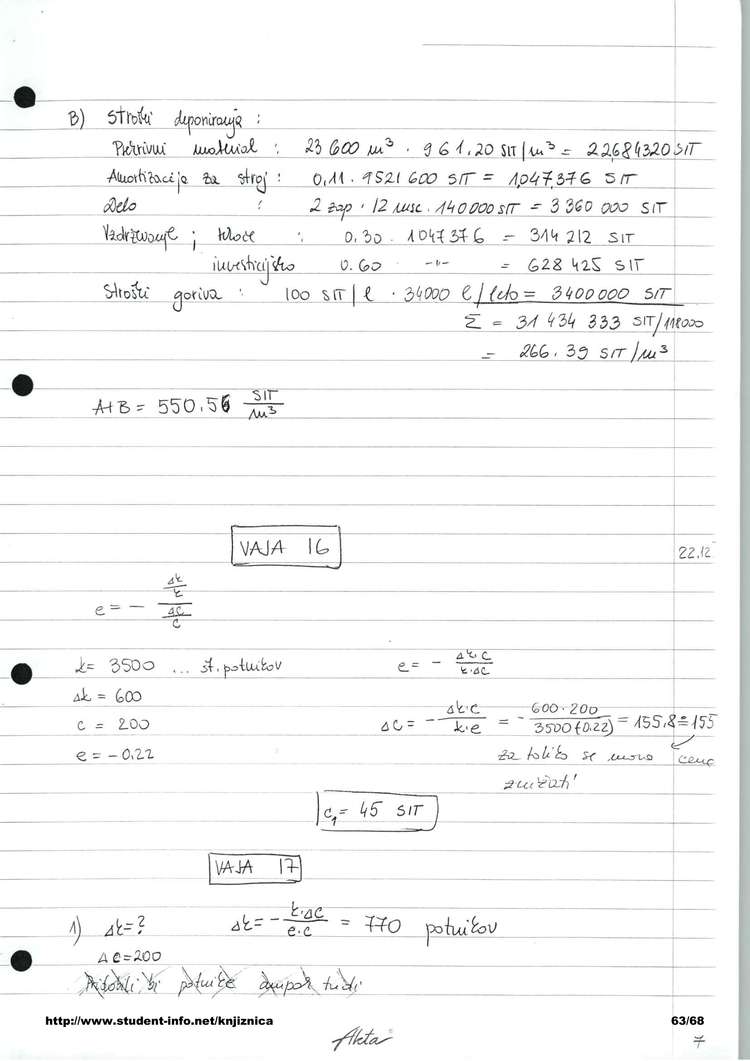 B) Stroški deponiranja :
Prekrivni material : 23 600 m³ · 961.20 SIT/m³ = 22684320 SIT
Amortizacija za stroj : 0,11 · 9521 600 SIT = 1,047,376 SIT
Delo : 2 zap · 12 mesc. 140000 SIT = 3 360 000 SIT
Vzdrževanje ; tekoče : 0.30 · 1047376 = 314 212 SIT
investicijsko 0.60 -"- = 628 425 SIT
Stroški goriva : 100 SIT/l · 34000 l/leto = 3400000 SIT
Σ = 31 434 333 SIT/118000
= 266.39 SIT/m³
A+B = 550.56 SIT/m³
VAJA 16
22.12
e = - (Δk/k)/(Δc/c)
k = 3500 ... št. potnikov e = - Δk·c/k·Δc
Δk = 600
c = 200 Δc = - Δk·c/k·e = - 600·200/3500(-0.22) = 155.8 ≐ 155
e = -0.22 za toliko se mora cena
znižati!
c₁ = 45 SIT
VAJA 17
1) Δk = ? Δk = - k·Δc/e·c = 770 potnikov
Δc = 200
bi potnike ampak tudi
http://www.student-info.net/knjiznica 63/68
Akta 7